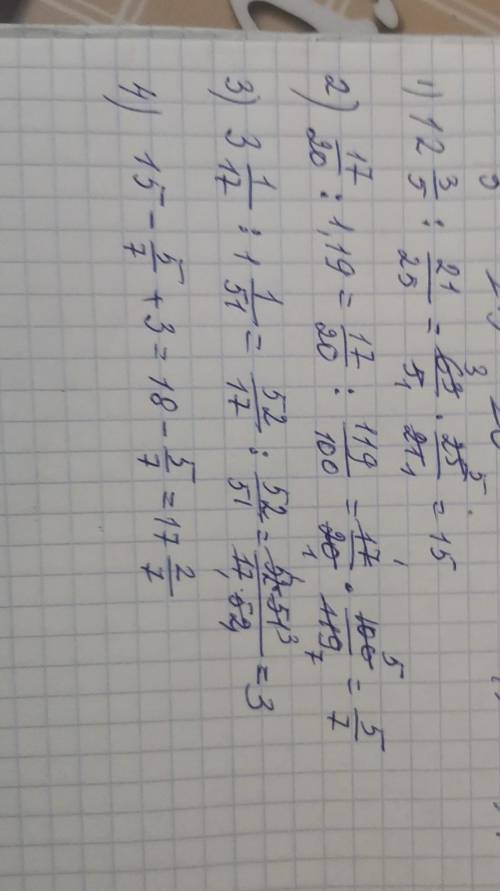 1) 12 3/5 : 21/25 = 63/5 · 25/21 = 15
2) 17/20 : 1,19 = 17/20 : 119/100 = 17/20 · 100/119 = 5/7
3) 3 1/17 : 1 1/51 = 52/17 : 52/51 = 52·51/17·52 = 3
4) 15 - 5/7 + 3 = 18 - 5/7 = 17 2/7